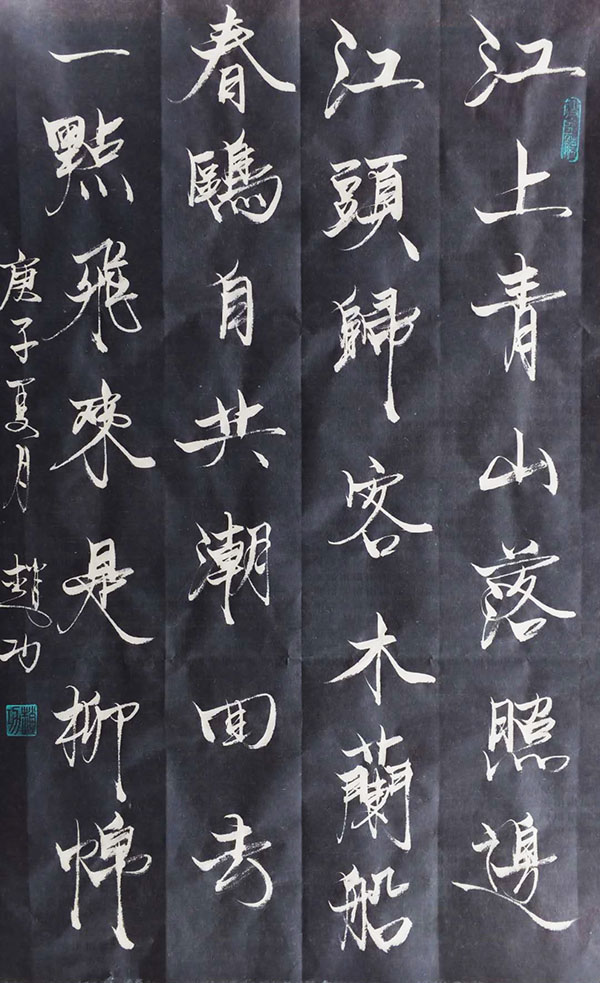 江上青山落照邊
江頭歸客木蘭船
春鷗自共潮回去
一點飛來是柳綿
庚子夏月 趙功
趙功